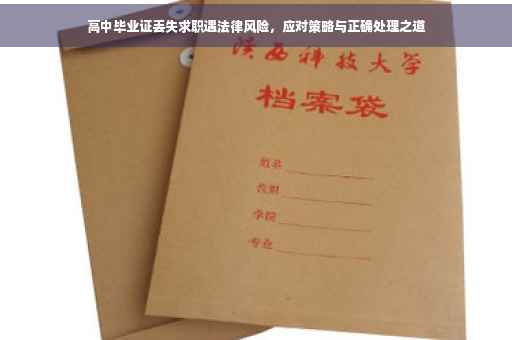 高中毕业证丢失求职遇法律风险，应对策略与正确处理之道
陕西科技大学
档案袋
姓名
学院
专业